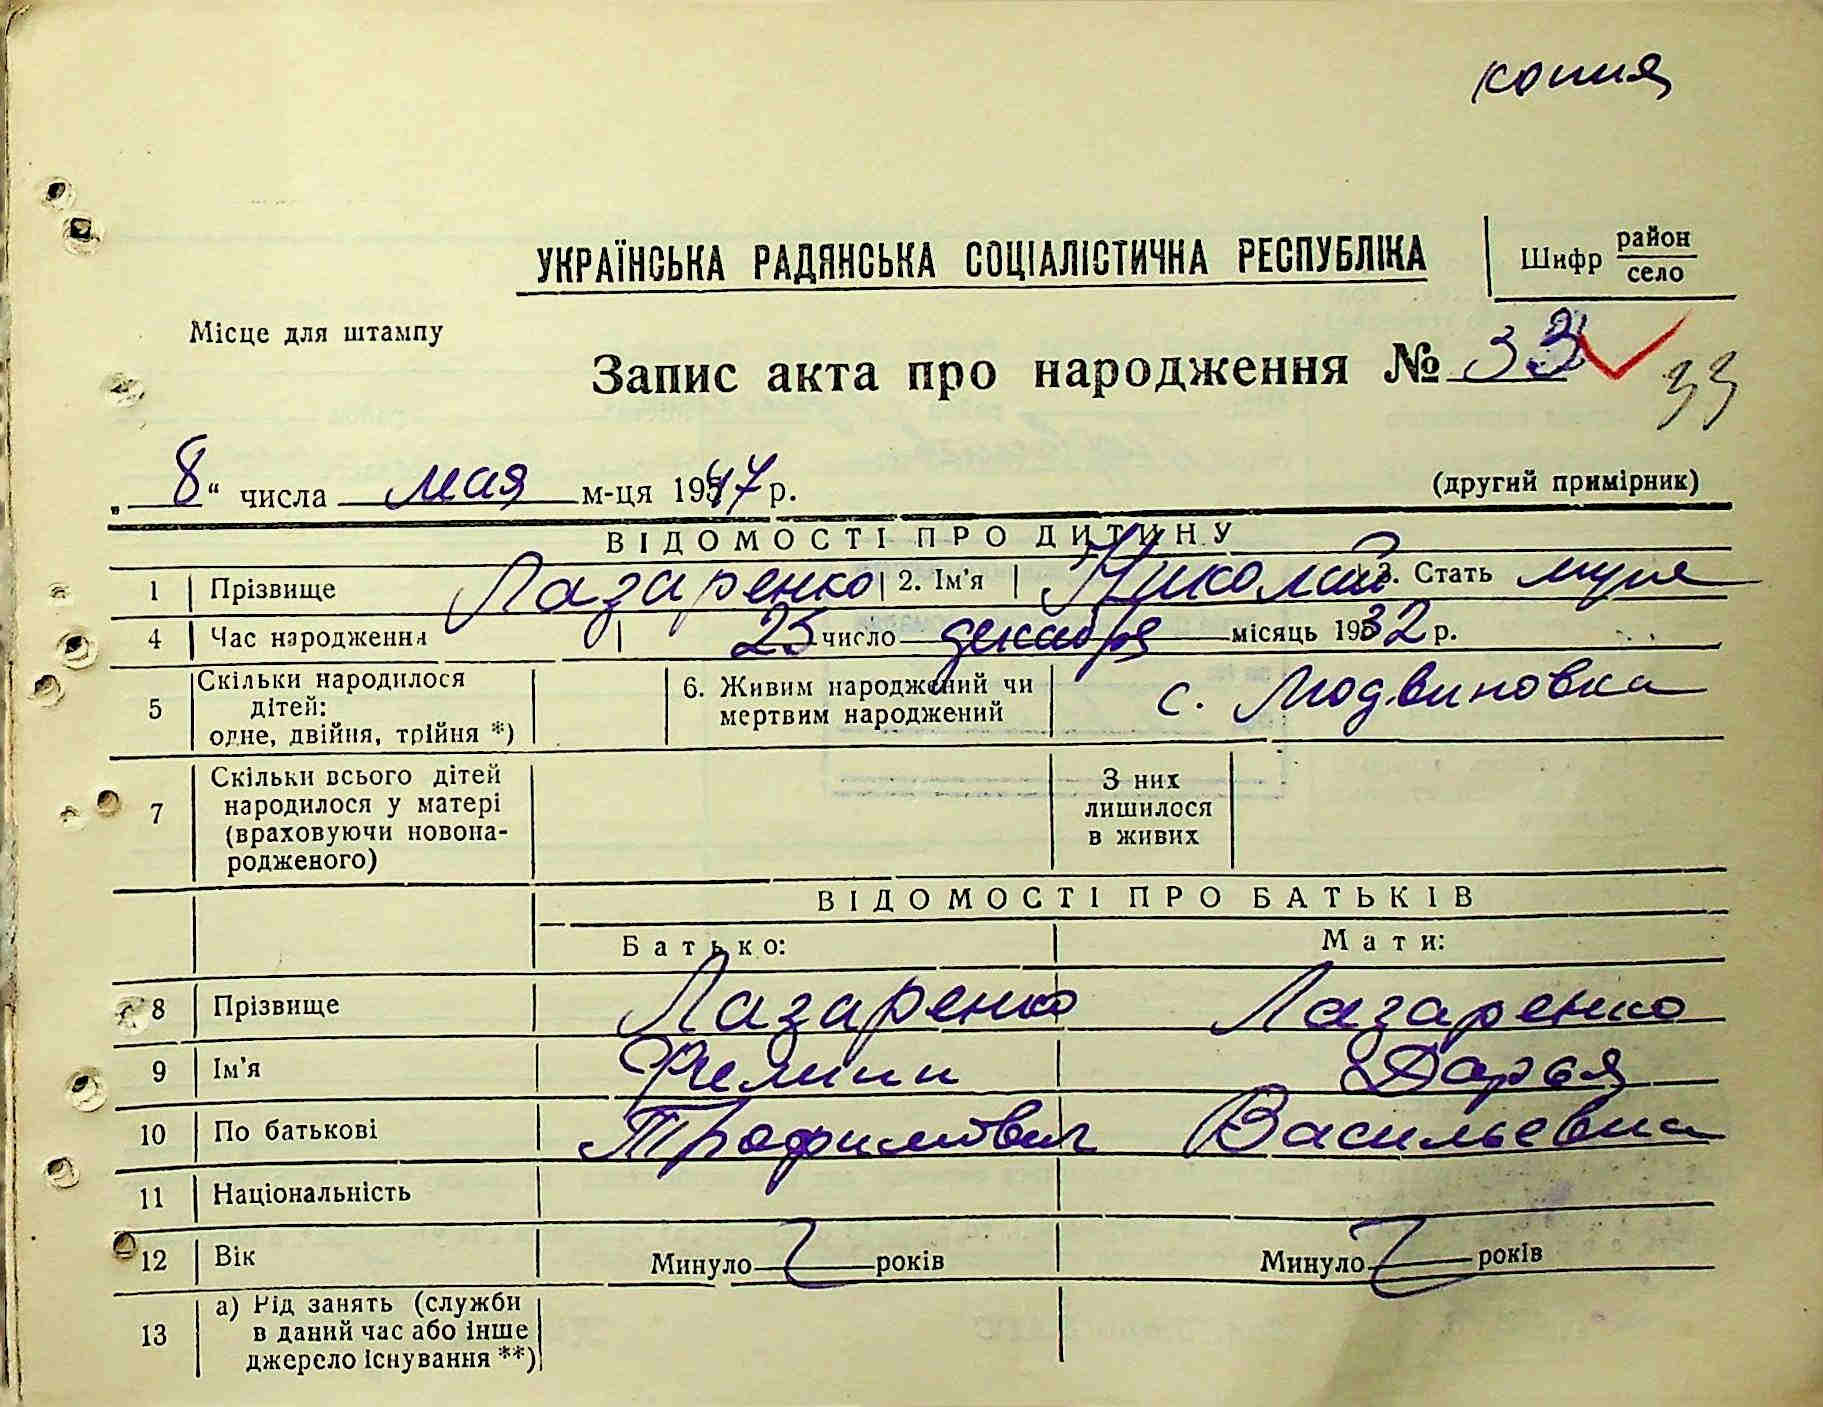 копия
УКРАЇНСЬКА РАДЯНСЬКА СОЦІАЛІСТИЧНА РЕСПУБЛІКА
Шифр район
село
Місце для штампу
Запис акта про народження № 33
33
„8“ числа мая м-ця 1947 р.
(другий примірник)
ВІДОМОСТІ ПРО ДИТИНУ
1 Прізвище Лазаренко 2. Ім'я Николай 3. Стать муж
4 Час народження 25 число декабря місяць 1932 р.
5 Скільки народилося дітей: одне, двійня, трійня *) 6. Живим народжений чи мертвим народжений с. Модвиновка
7 Скільки всього дітей народилося у матері (враховуючи новонародженого) З них лишилося в живих
ВІДОМОСТІ ПРО БАТЬКІВ
Батько: Мати:
8 Прізвище Лазаренко Лазаренко
9 Ім'я Филипп Дарья
10 По батькові Трофимович Васильевна
11 Національність
12 Вік Минуло років Минуло років
13 а) Рід занять (служби в даний час або інше джерело існування **)